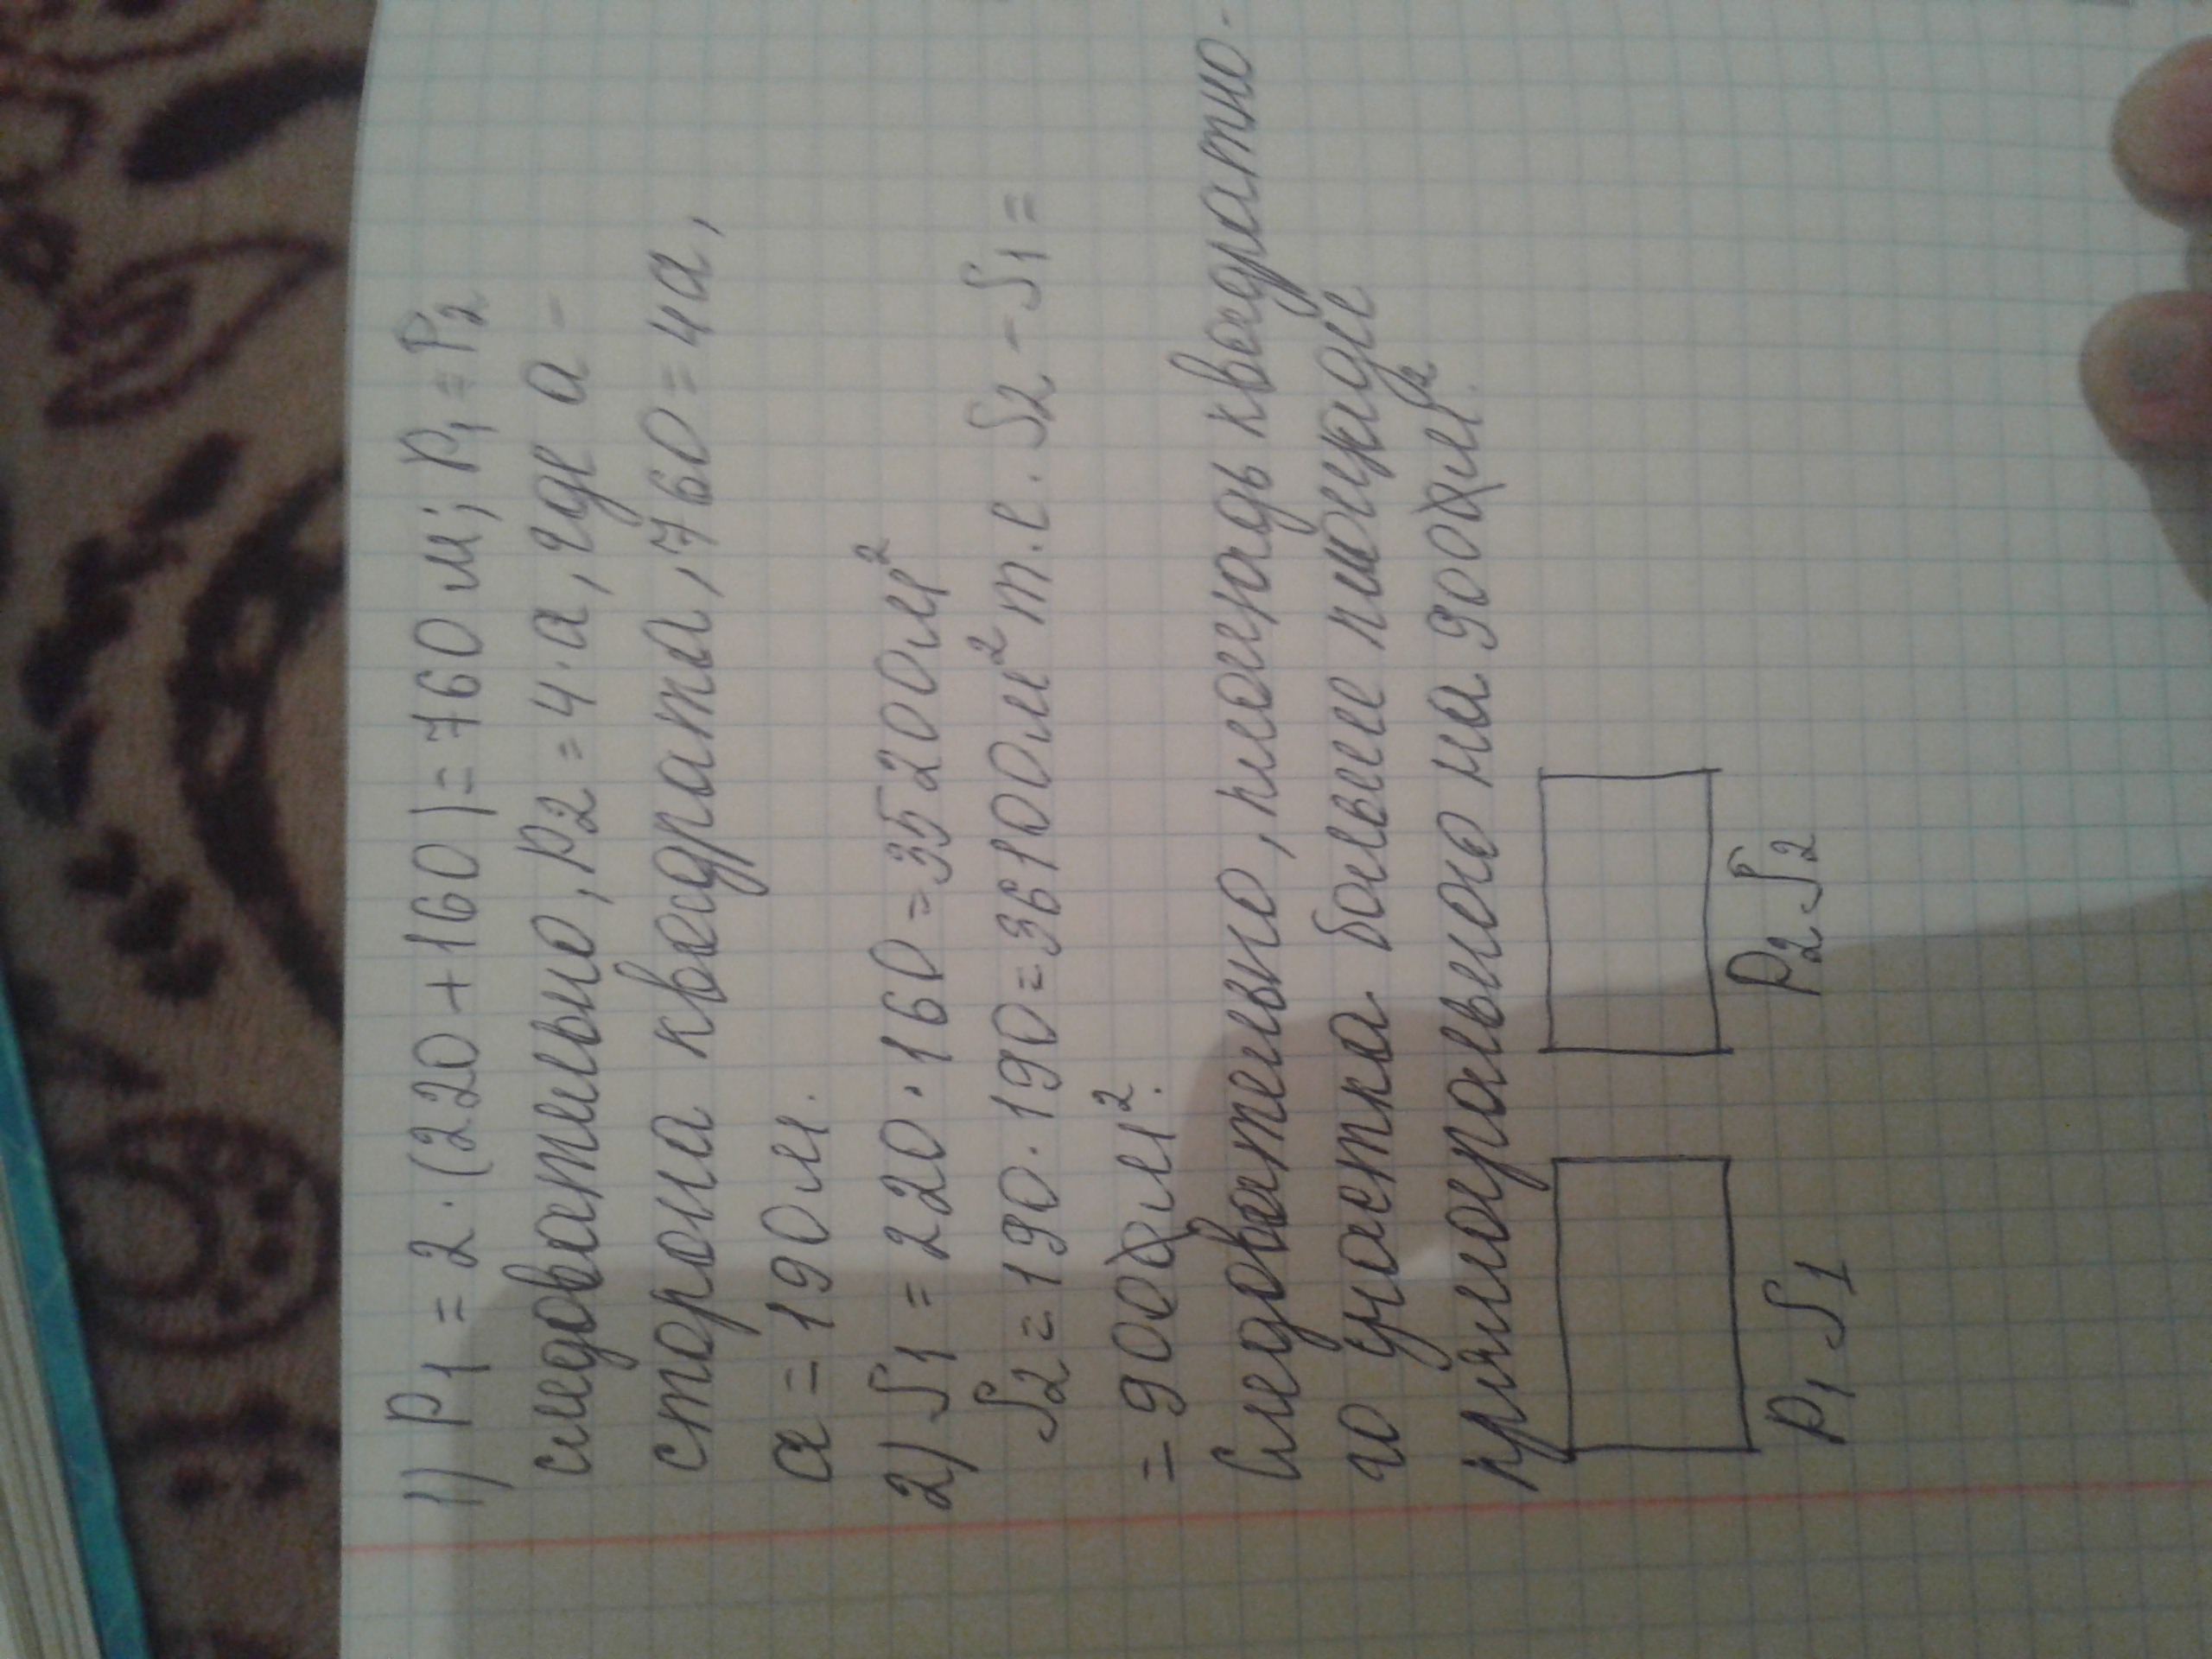 1) P1 = 2·(220+160)=760 м; P1=P2
следовательно, P2=4·a, где a -
сторона квадрата, 760=4a,
a=190м.
2) S1 = 220·160=35200м²
S2=190·190=36100м² т.е. S2-S1=
= 900м².
Следовательно, площадь квадратно-
го участка больше площади
прямогрального на 900м².
P1 S1 P2 S2